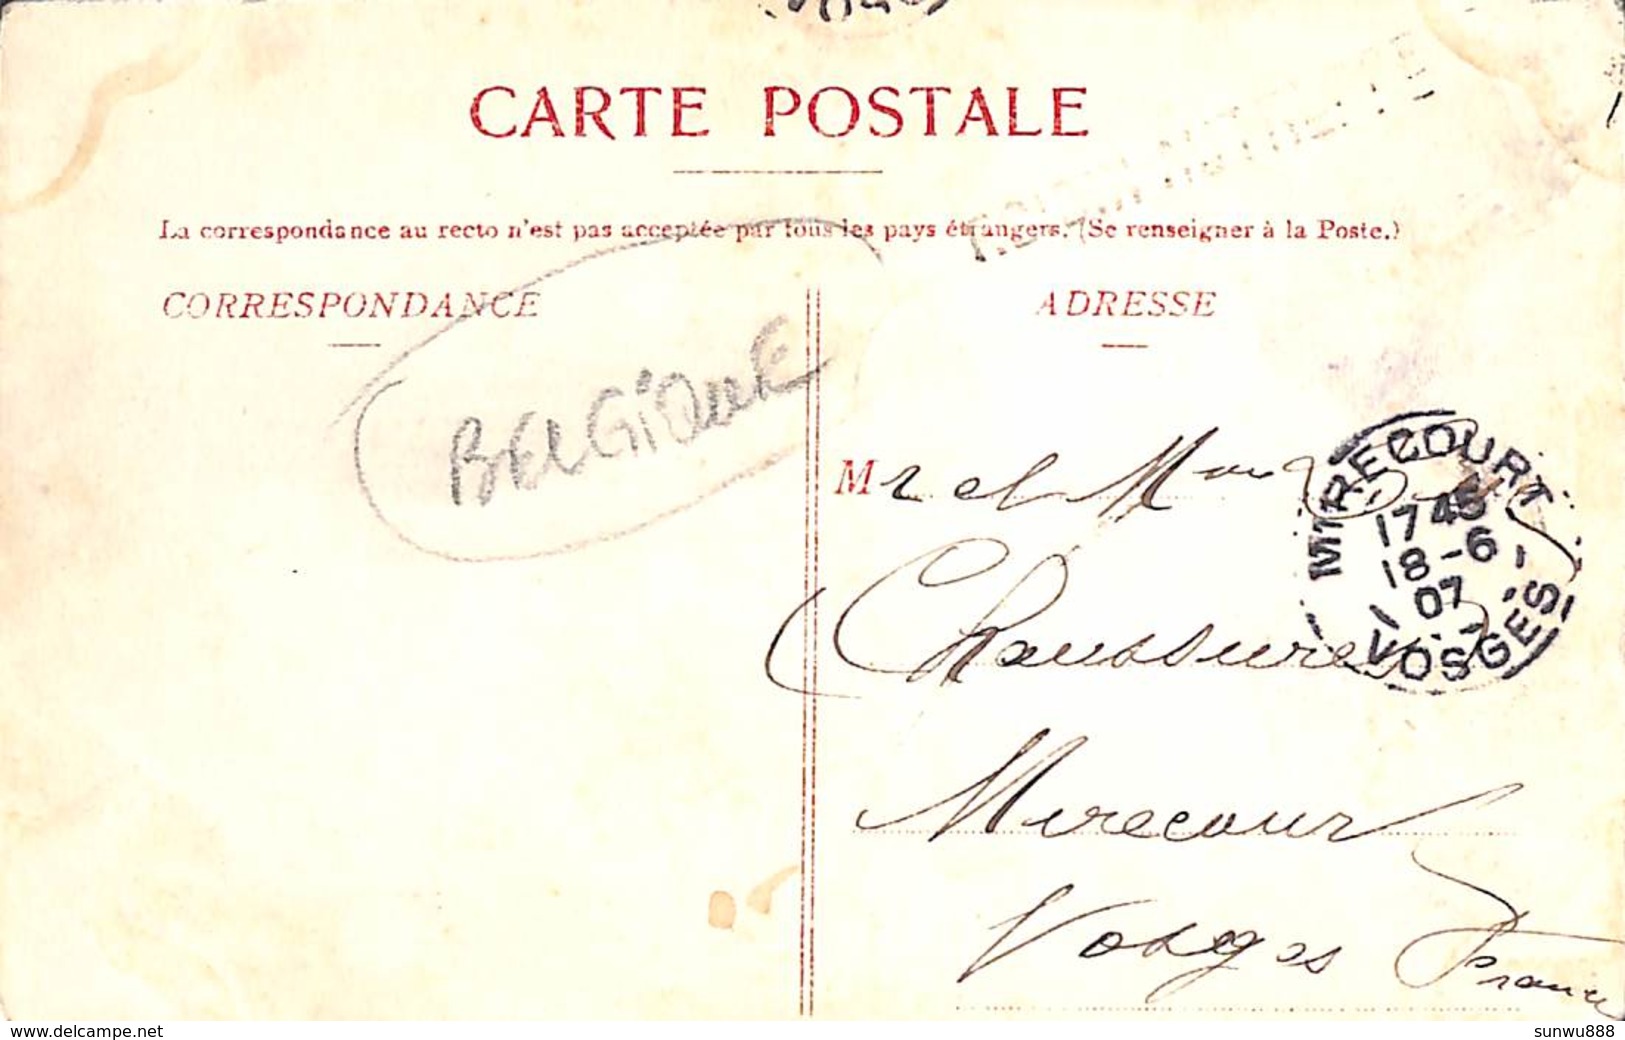 CARTE POSTALE
La correspondance au recto n'est pas acceptée par tous les pays étrangers. (Se renseigner à la Poste.)
CORRESPONDANCE
ADRESSE
BELGIQUE
Mr et Mme
MIRECOURT
17 45
18 - 6
07
VOSGES
Chaussures
Mirecourt
Vosges France
sunwu888